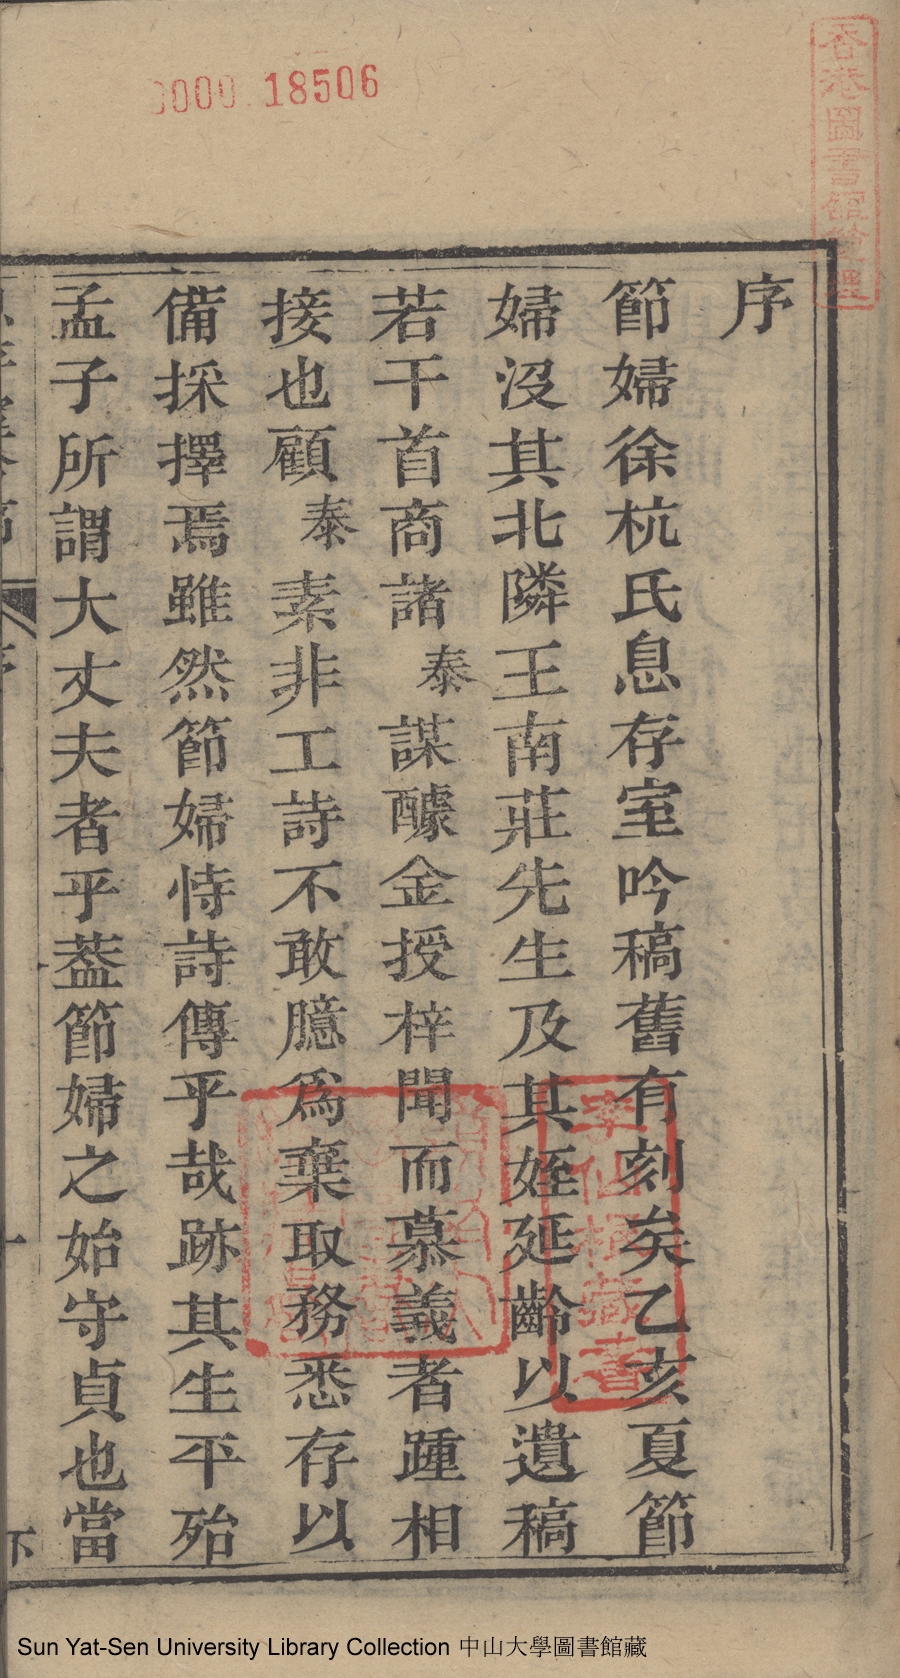 0000 18506
序
節婦徐杭氏息存室吟稿舊有刻矣乙亥夏節
婦沒其北隣王南莊先生及其姪延齡以遺稿
若干首商諸泰謀醵金授梓聞而慕義者踵相
接也顧泰素非工詩不敢臆爲棄取務悉存以
備採擇焉雖然節婦恃詩傳乎哉跡其生平殆
孟子所謂大丈夫者乎葢節婦之始守貞也當
李仙根藏書
Sun Yat-Sen University Library Collection 中山大學圖書館藏